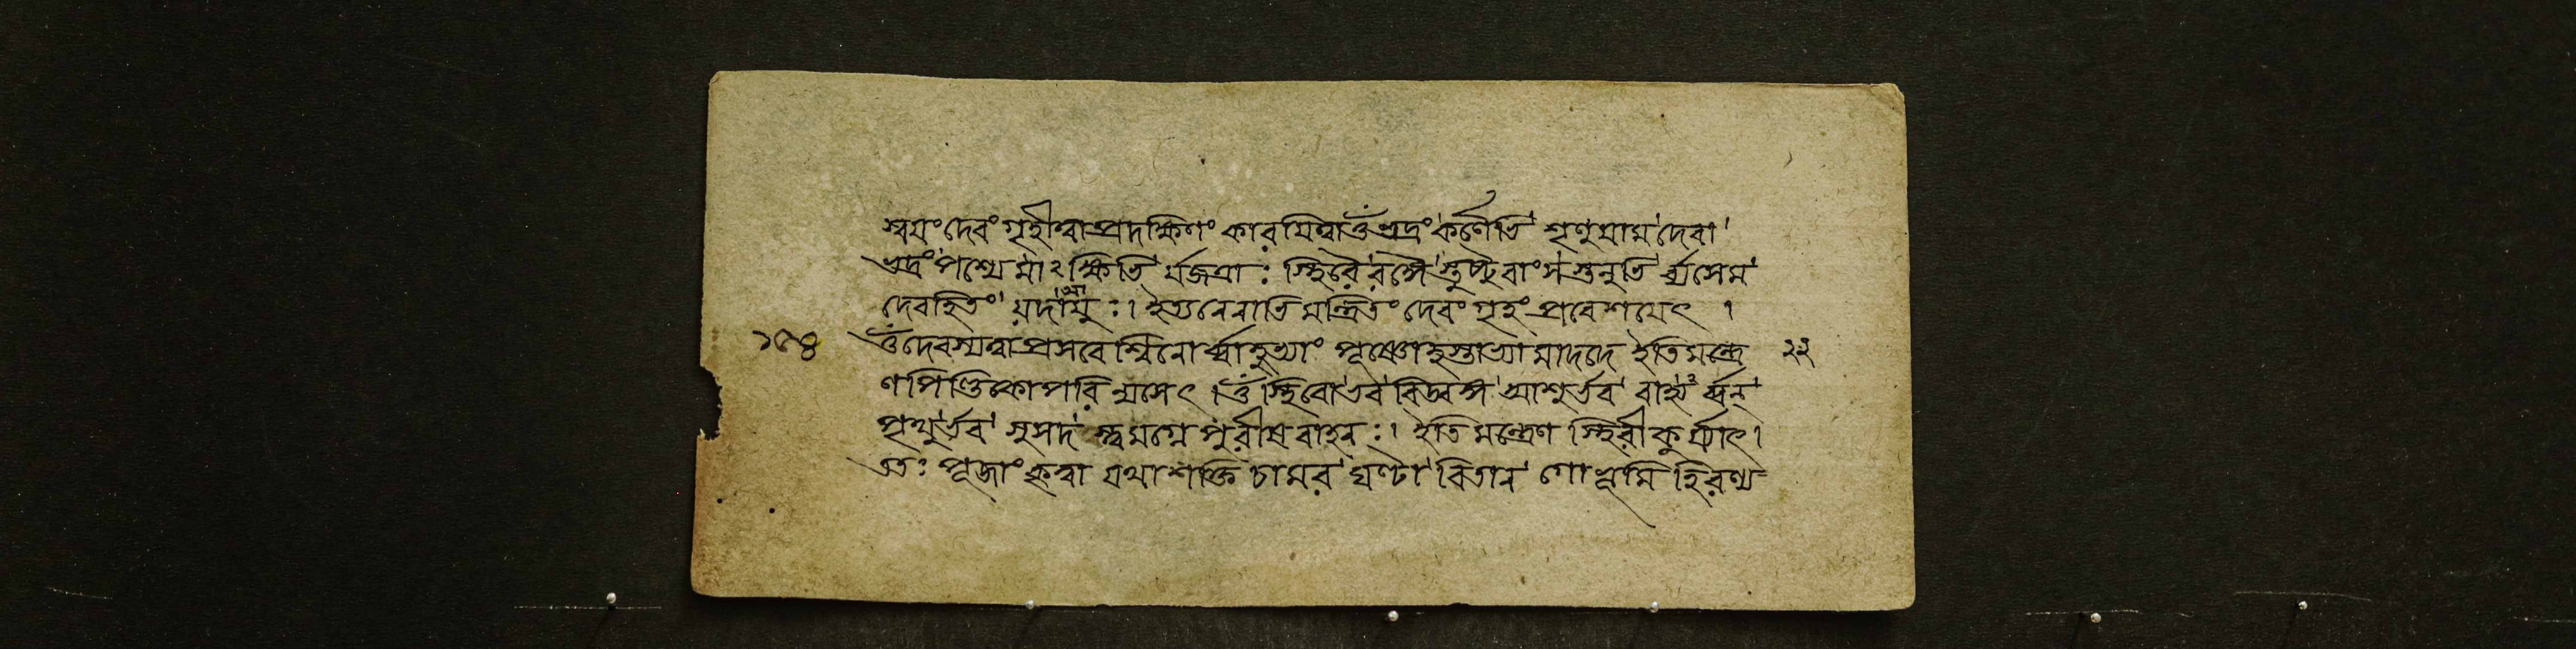 স্বয়ং দেবং গৃহীত্বা প্রদক্ষিণং কারয়িত্বা ওঁ ভদ্রং কর্ণেভি শৃণুয়াম দেবা
ভদ্রং পশ্যেমা২ক্ষিভি র্যজত্রাঃ স্থিরৈ রঙ্গৈ স্তুষ্টুবাংসস্তনুভি র্ব্যসেম
দেবহিতং যদায়ুঃ। ইত্যনেনাভিমন্ত্রিতং দেবং গৃহং প্রবেশয়েৎ।
১৫৪ ওঁ দেবস্যত্বা প্রসবেশ্বিনো র্ব্বাহুভ্যাং পূষ্ণোহস্তাভ্যামাদদে ইতি মন্ত্রে ২২
ণ পিণ্ডিকোপরি ন্যসেৎ। ওঁ স্থিরো ভব বিড্বঙ্গ আশুর্ভব বাজ্য র্ব্বন্
পৃথুর্ভব সুসদ স্ত্বমগ্নে পুরীষবাহনঃ। ইতি মন্ত্রেণ স্থিরী কুর্য্যাৎ।
ততঃ পূজাং কৃত্বা যথাশক্তি চামর ঘণ্টা বিতান গো ভূমি হিরণ্য